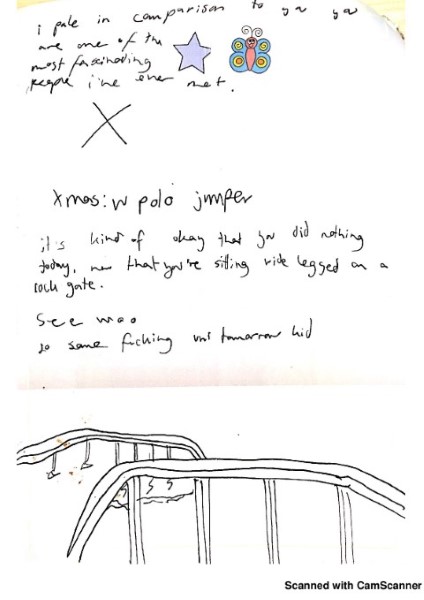 i pale in comparison to you you
are one of the
most fascinating
people i've ever met.
X
Xmas: w polo jumper
it's kind of okay that you did nothing
today, now that you're sitting wide legged on a
lock gate.
See moo
do some fucking tomorrow kid
Scanned with CamScanner